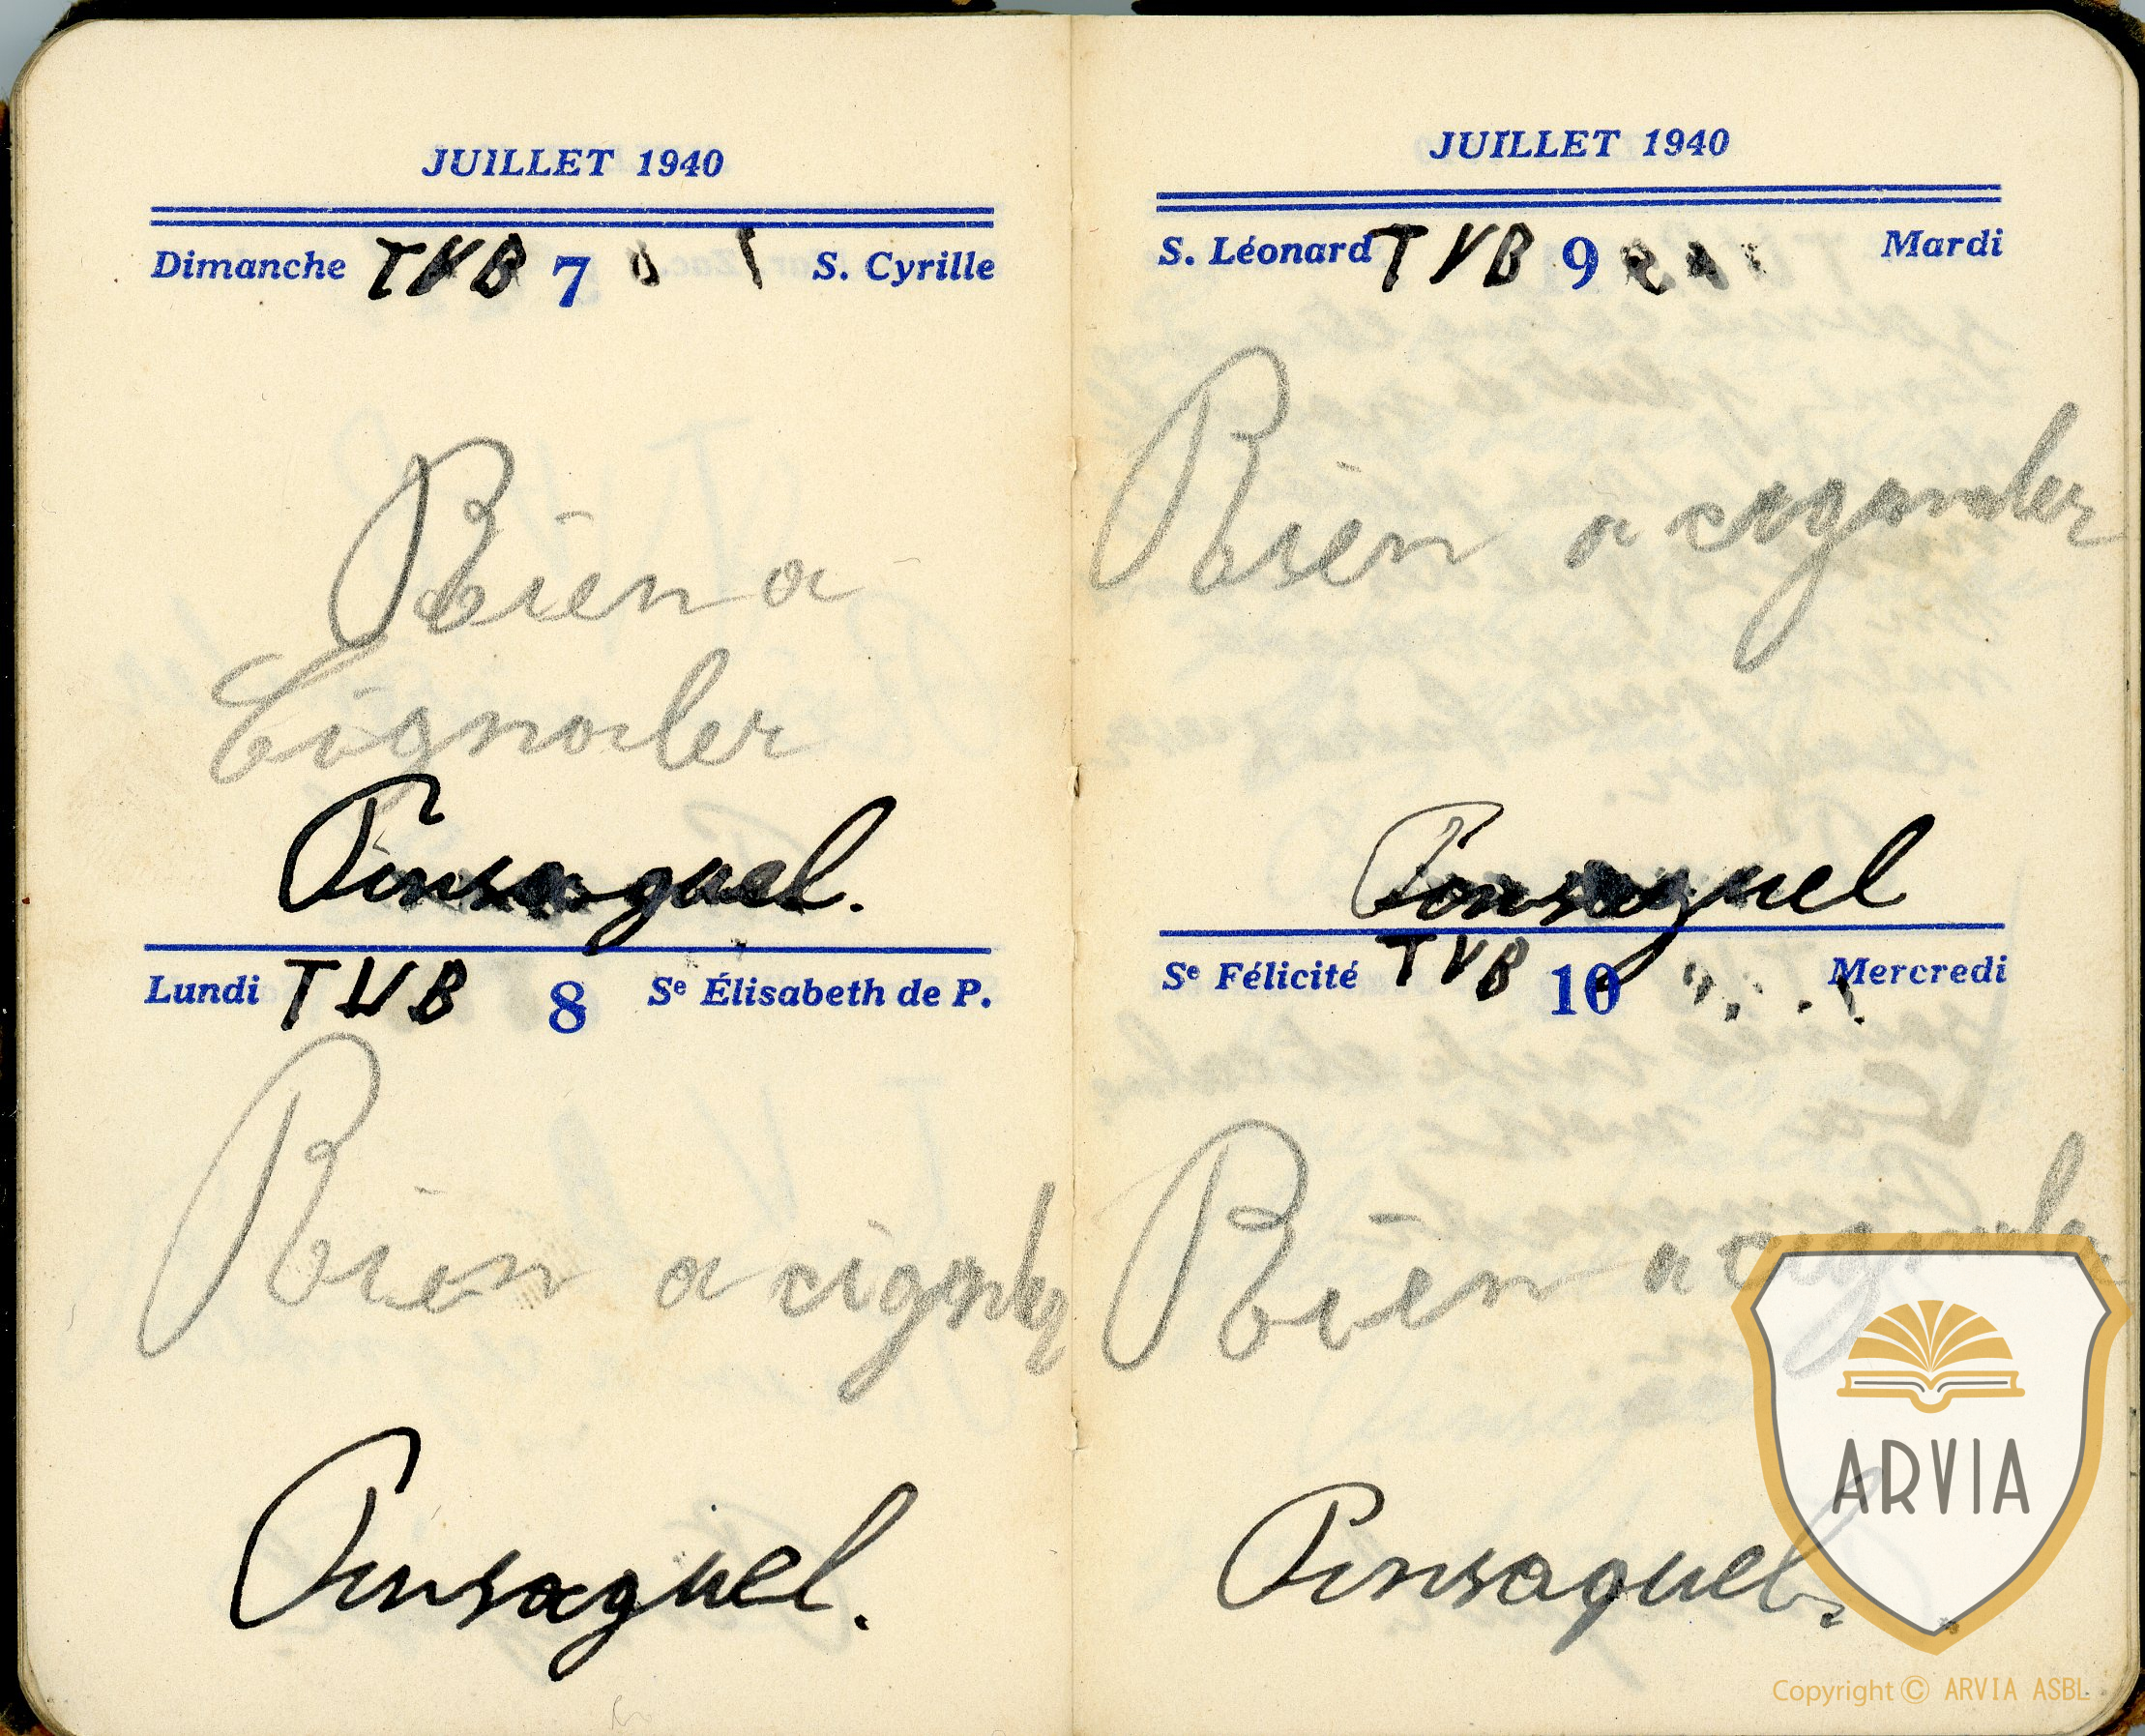 JUILLET 1940
Dimanche TVB 7 S. Cyrille
Rien a
Signaler
Pinsaguel.
Lundi TVB 8 Sᵉ Élisabeth de P.
Rien a signaler
Pinsaguel.
JUILLET 1940
S. Léonard TVB 9 Mardi
Rien a signaler
Pinsaguel
Sᵉ Félicité TVB 10 Mercredi
Rien a signaler
Pinsaguel.
ARVIA
Copyright © ARVIA ASBL